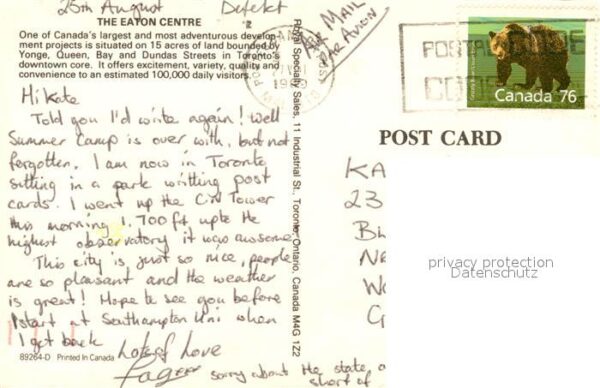 25th August Defekt
THE EATON CENTRE
One of Canada's largest and most adventurous develop-
ment projects is situated on 15 acres of land bounded by
Yonge, Queen, Bay and Dundas Streets in Toronto's
downtown core. It offers excitement, variety, quality and
convenience to an estimated 100,000 daily visitors.
Hi Kate
Told you I'd write again! Well
Summer Camp is over with, but not
forgotten. I am now in Toronto
sitting in a park writting post
cards. I went up the CN Tower
this morning 1,700 ft upto the
highest observatory it was awsome.
This city is just so nice, people
are so pleasant and the weather
is great! Hope to see you before
I start at Southampton Uni when
I get back
Lots of Love
sorry about the state o
short of
89264-D Printed In Canada
Royal Specialty Sales, 11 Industrial St., Toronto-Ontario, Canada M4G 1Z2
AIR MAIL
PAR AVION
POSTAL CODE
CODE
Canada 76
POST CARD
KA
23
Bl
Ne
Wo
privacy protection
Datenschutz